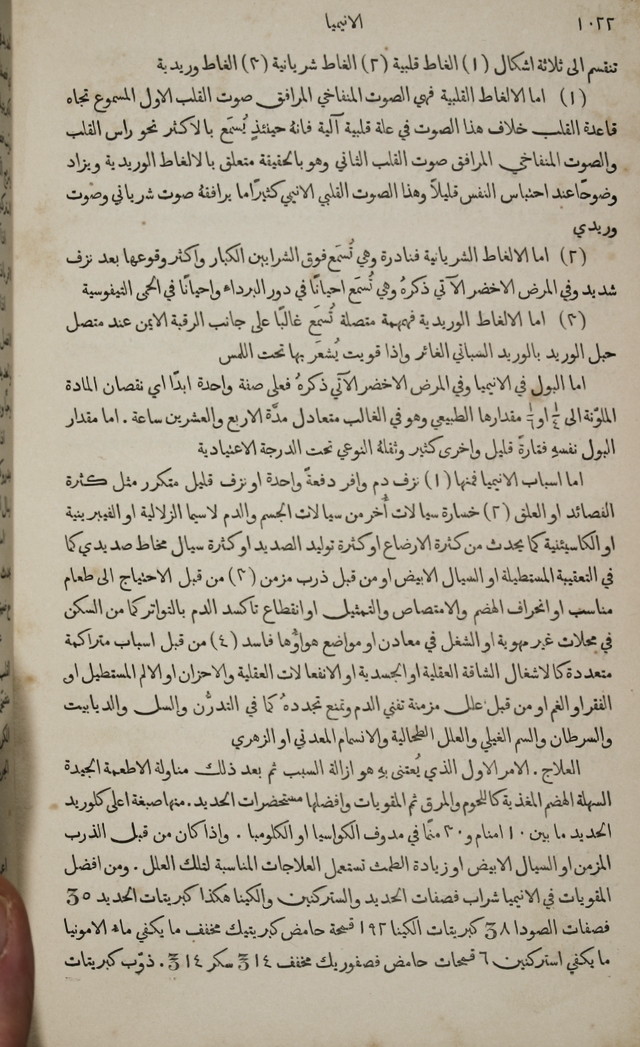 ١٠٢٢
الانيميا
تنقسم الى ثلاثة اشكال (١) الغاط قلبية (٢) الغاط شريانية (٣) الغاط وريدية
(١) اما الالغاط القلبية فهي الصوت المنفاخي المرافق صوت القلب الاول المسموع تجاه
قاعدة القلب خلاف هذا الصوت في علة قلبية آلية فانهُ حينئذٍ يُسمَع بالاكثر نحو راس القلب
والصوت المنفاخي المرافق صوت القلب الثاني وهو بالحقيقة متعلق بالالغاط الوريدية ويزاد
وضوحًا عند احتباس النفس قليلاً وهذا الصوت القلبي الانيمي كثيرًا ما يرافقهُ صوت شرياني وصوت
وريدي
(٢) اما الالغاط الشريانية فنادرة وهي تُسمَع فوق الشرايين الكبار واكثر وقوعها بعد نزف
شديد وفي المرض الاخضر الآتي ذكرهُ وهي تُسمَع احيانًا في دور البرداء واحيانًا في الحمى التيفوسية
(٣) اما الالغاط الوريدية فهمهمة متصلة تُسمَع غالبًا على جانب الرقبة الايمن عند متصل
حبل الوريد بالوريد السباتي الغائر واذا قويت يُشعَر بها تحت اللمس
اما البول في الانيميا وفي المرض الاخضر الآتي ذكرهُ فعلى صفة واحدة ابدًا اي نقصان المادة
الملوّنة الى ¼ او ⅙ مقدارها الطبيعي وهو في الغالب متعادل مدَّة الاربع والعشرين ساعة. اما مقدار
البول نفسهِ فتارةً قليل واخرى كثير وثقلهُ النوعي تحت الدرجة الاعتيادية
اما اسباب الانيميا فمنها (١) نزف دم وافر دفعةً واحدة او نزف قليل متكرر مثل كثرة
الفصائد او العلق (٢) خسارة سيالات أُخر من سيالات الجسم والدم لاسيما الزلالية او الفيبرينية
او الكاسيئنية كما يحدث من كثرة الارضاع او كثرة توليد الصديد او كثرة سيال مخاط صديدي كما
في التعقيبة المستطيلة او السيال الابيض او من قبل ذرب مزمن (٣) من قبل الاحتياج الى طعام
مناسب او انحراف الهضم والامتصاص والتمثيل او انقطاع تاكسد الدم بالتواتر كما من السكن
في محلات غير مهوية او الشغل في معادن او مواضع هواؤُها فاسد (٤) من قبل اسباب متراكمة
متعددة كالاشغال الشاقة العقلية او الجسدية او الانفعالات العقلية والاحزان او الالم المستطيل او
الفقر او الغم او من قبل علل مزمنة تفني الدم وتمنع تجددهُ كما في التدرُّن والسل والديابيت
والسرطان والسم الغيلي والعلل الطحالية والانسمام المعدني او الزهري
العلاج. الامر الاول الذي يُعتنى بهِ هو ازالة السبب ثم بعد ذلك مناولة الاطعمة الجيدة
السهلة الهضم المغذية كاللحوم والمرق ثم المقويات وافضلها مستحضرات الحديد. منها صبغة اعلى كلوريد
الحديد ما بين ١٠ امنام و٢٠ منًّا في مذوف الكواسيا او الكلومبا. واذا كان من قبل الذرب
المزمن او السيال الابيض او زيادة الطمث تستعمل العلاجات المناسبة لتلك العلل. ومن افضل
المقويات في الانيميا شراب فصفات الحديد والستركنين والكينا هكذا كبريتات الحديد ʒ٥
فصفات الصودا ʒ٨ كبريتات الكينا ١٩٢ قمحة حامض كبريتيك مخفف ما يكفي ماء الامونيا
ما يكفي استركنين ٦ قمحات حامض فصفوريك مخفف ʒ١٤ سكر ʒ١٤. ذوّب كبريتات